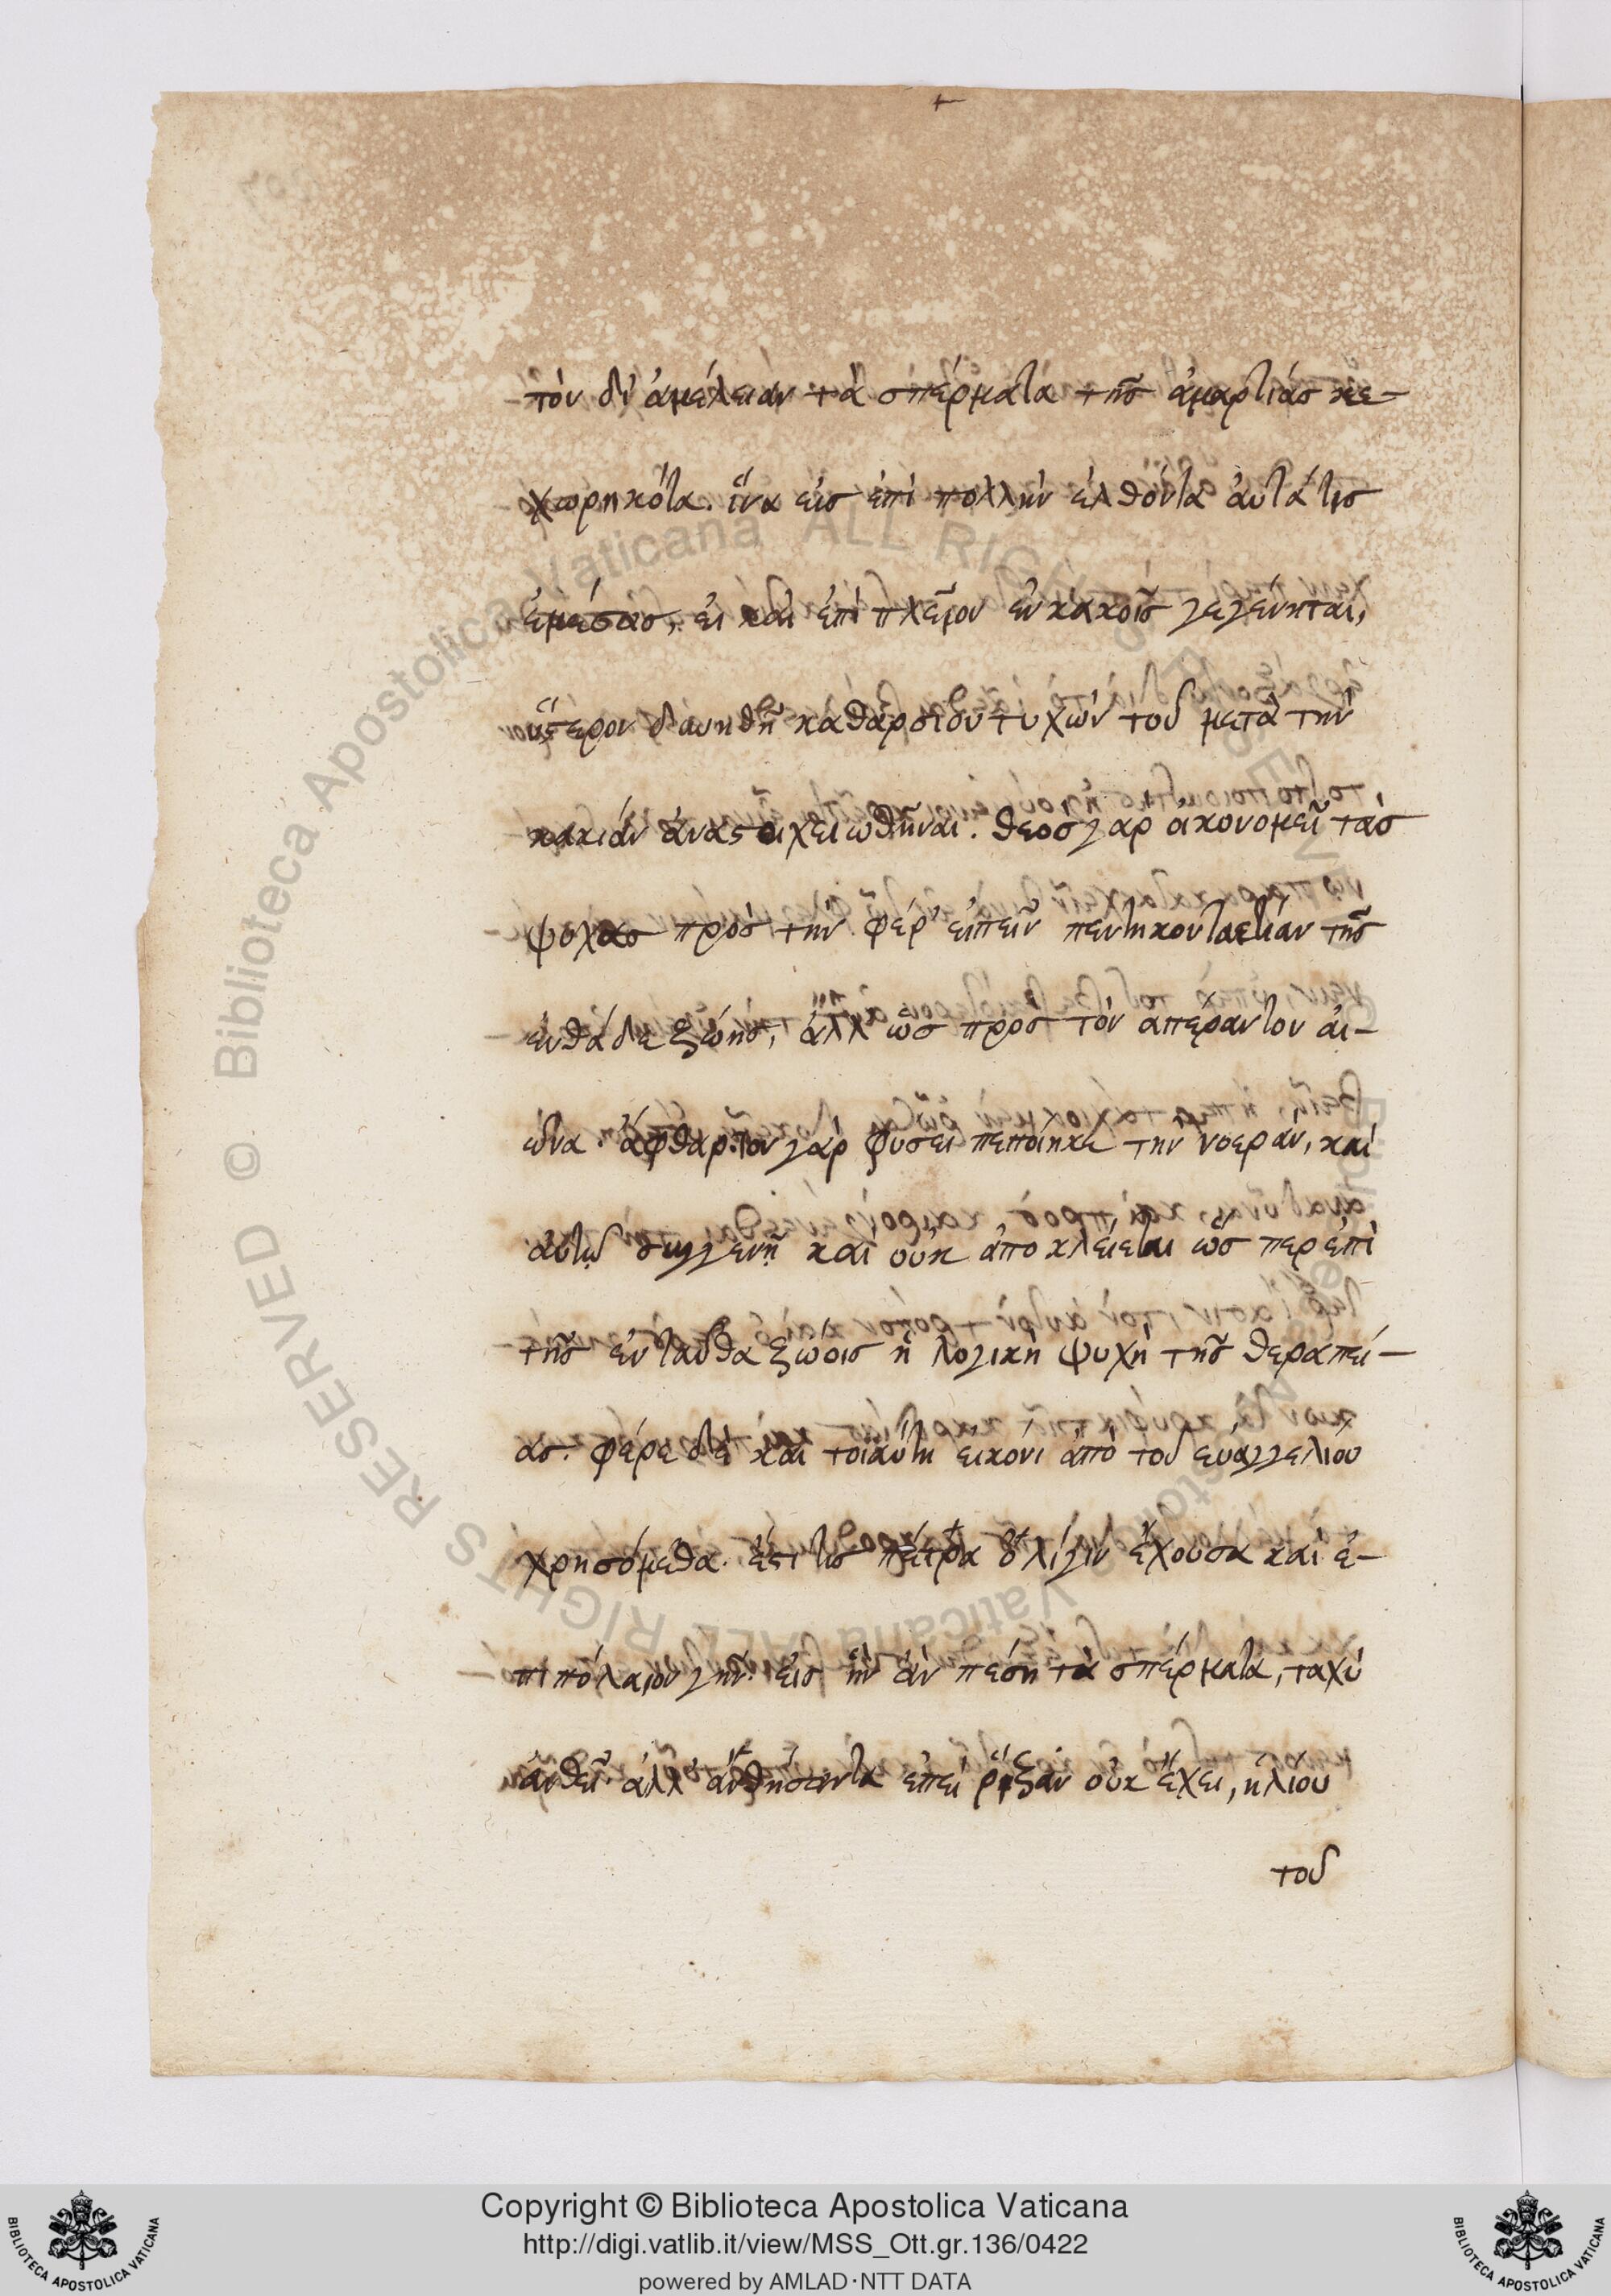 πὸν δι' ἀμέλειαν τὰ σπέρματα τῆς ἁμαρτίας κε-
χωρηκότα. ἵνα εἰς ἐπὶ πολλὴν ἐλθόντα αὐτά τις
ἐμέσας, εἰ καὶ ἐπὶ πλεῖον ἐν κακοῖς γεγένηται,
ὕστερον δυνηθῇ καθαρσίου τυχὼν τοῦ μετὰ τὴν
κακίαν ἀναστοιχειωθῆναι. θεὸς γὰρ οἰκονομεῖ τὰς
ψυχας πρὸς τὴν φέρ' εἰπεῖν πεντηκονταετίαν τῆς
ἐνθάδε ζωῆς, ἀλλ' ὡς πρὸς τὸν ἀπέραντον αἰ-
ῶνα. ἄφθαρτον γὰρ φύσει πεποίηκε τὴν νοερὰν, καὶ
αὐτῷ συγγενῆ καὶ οὐκ ἀποκλείεται ὥς περ ἐπὶ
τῆς ἐνταῦθα ζωῆς ἡ λογικὴ ψυχὴ τῆς θεραπεί-
ας. φέρε δὲ καὶ τοιαύτη εἰκόνι ἀπὸ τοῦ εὐαγγελίου
χρησόμεθα. ἔστι τις πέτρα ὀλίγην ἔχουσα καὶ ἐ-
πιπόλαιον γῆν. εἰς ἣν ἂν πέση τὰ σπέρματα, ταχὺ
ἀνθεῖ ἀλλ' ἀνθήσαντα ἐπεὶ ῥίζαν οὐκ ἔχει, ἡλίου
τοῦ
Copyright © Biblioteca Apostolica Vaticana
http://digi.vatlib.it/view/MSS_Ott.gr.136/0422
powered by AMLAD·NTT DATA
BIBLIOTECA APOSTOLICA VATICANA
BIBLIOTECA APOSTOLICA VATICANA